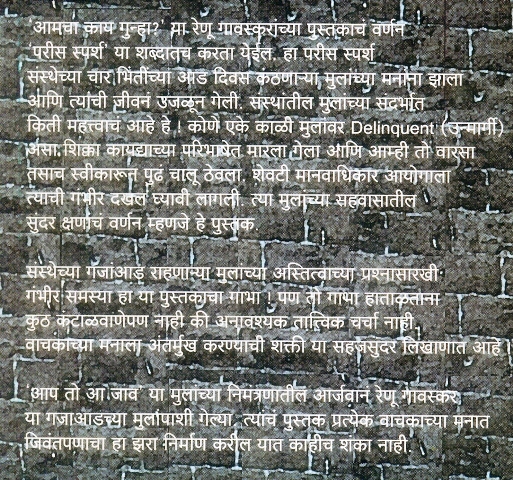 'आमचा काय गुन्हा?' या रेणू गावस्करांच्या पुस्तकाचं वर्णन
'परीस स्पर्श' या शब्दातच करता येईल. हा परीस स्पर्श
संस्थेच्या चार भिंतींच्या आड दिवस कंठणाऱ्या मुलांच्या मनांना झाला
आणि त्यांची जीवनं उजळून गेली. संस्थातील मुलांच्या संदर्भात
किती महत्त्वाचं आहे हे ! कोणे एके काळी मुलांवर 'Delinquent' (उन्मार्गी)
असा शिक्का कायद्याच्या परिभाषेत मारला गेला आणि आम्ही तो वारसा
तसाच स्वीकारून पुढं चालू ठेवला. शेवटी मानवाधिकार आयोगाला
त्याची गंभीर दखल घ्यावी लागली. त्या मुलांच्या सहवासातील
सुंदर क्षणांचं वर्णन म्हणजे हे पुस्तक.
संस्थेच्या गजाआड राहणाऱ्या मुलांच्या अस्तित्वाच्या प्रश्नासारखी
गंभीर समस्या हा या पुस्तकाचा गाभा ! पण तो गाभा हाताळताना
कुठं कंटाळवाणेपण नाही की अनावश्यक तात्त्विक चर्चा नाही.
वाचकांच्या मनाला अंतर्मुख करण्याची शक्ती या सहजसुंदर लिखाणात आहे
'आप तो आ जाव' या मुलांच्या निमंत्रणातील आर्जवानं रेणू गावस्कर
या गजाआडच्या मुलांपाशी गेल्या. त्यांचं पुस्तक प्रत्येक वाचकाच्या मनात
जिवंतपणाचा हा झरा निर्माण करील यात काहीच शंका नाही.